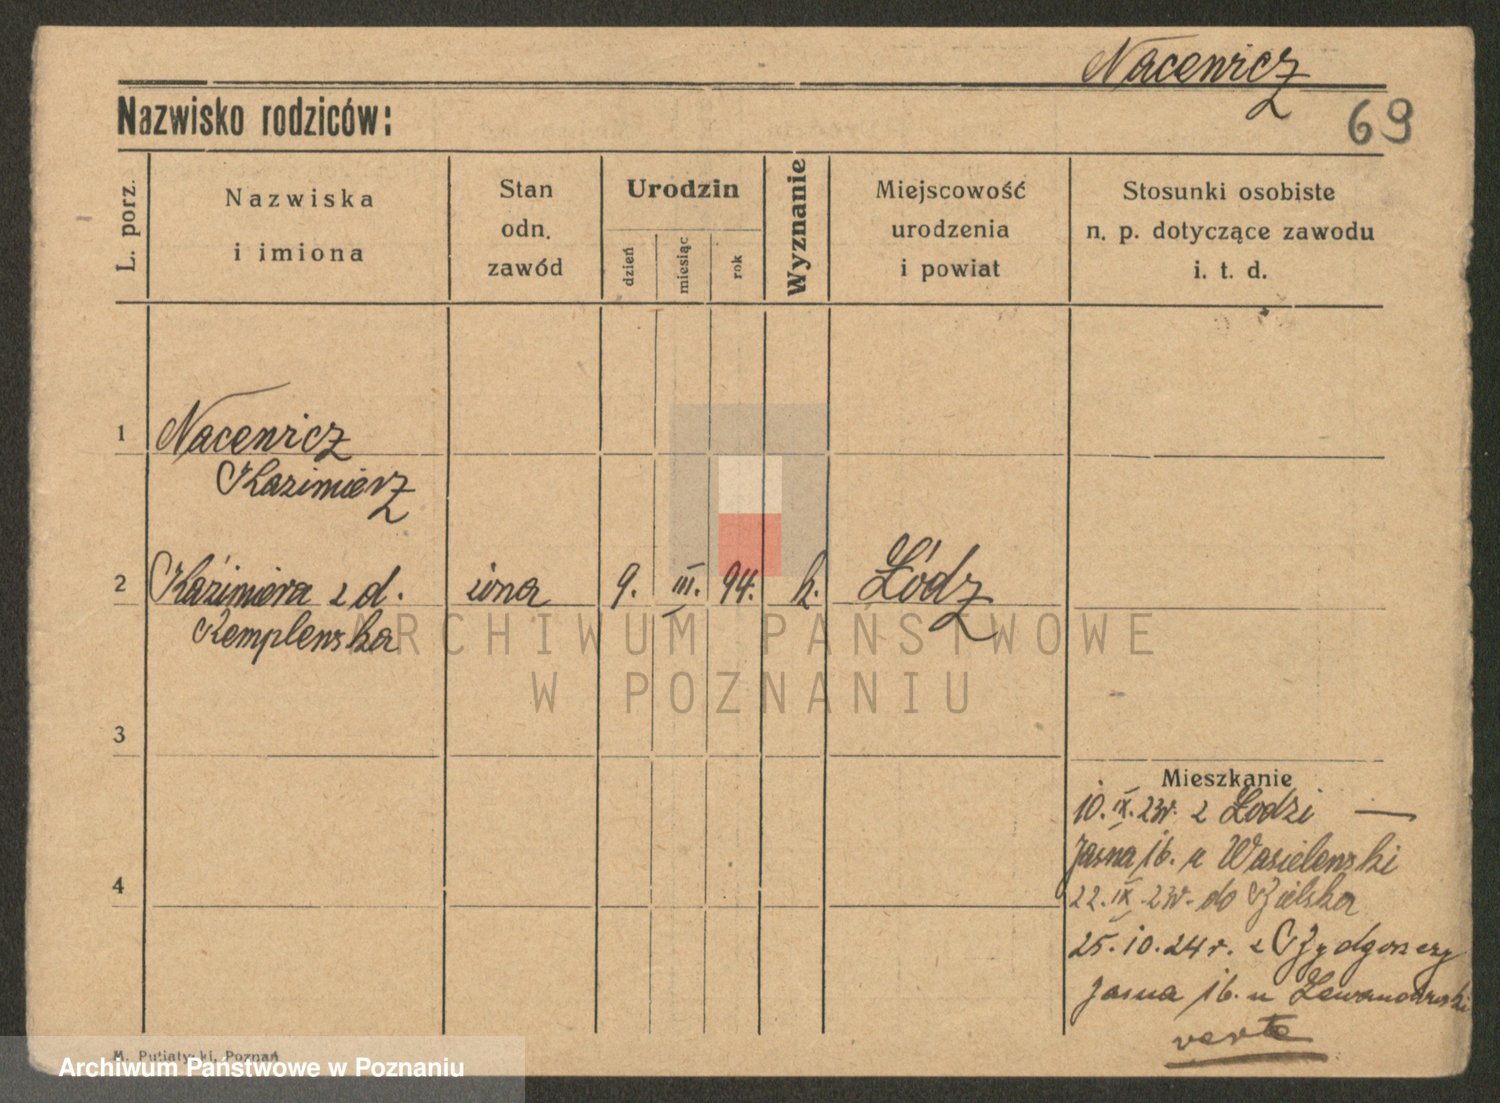 Nacewicz
69
Nazwisko rodziców:
L. porz.
Nazwiska
i imiona
Stan
odn.
zawód
Urodzin
dzień
miesiąc
rok
Wyznanie
Miejscowość
urodzenia
i powiat
Stosunki osobiste
n. p. dotyczące zawodu
i. t. d.
1
Nacewicz
Kazimierz
2 Kazimiera z d. żona 9. III. 94. k. Łódz
Kemplewska
ARCHIWUM PAŃSTWOWE
W POZNANIU
3
Mieszkanie
10. IX. 23r. z Łodzi —
Jasna 16. u Wasielewski
4
22. IX. 23r. do Bielska
25. 10. 24 r. z Bydgoszczy
Jasna 16. u Lewandowski
verte
M. Putiatycki, Poznań
Archiwum Państwowe w Poznaniu